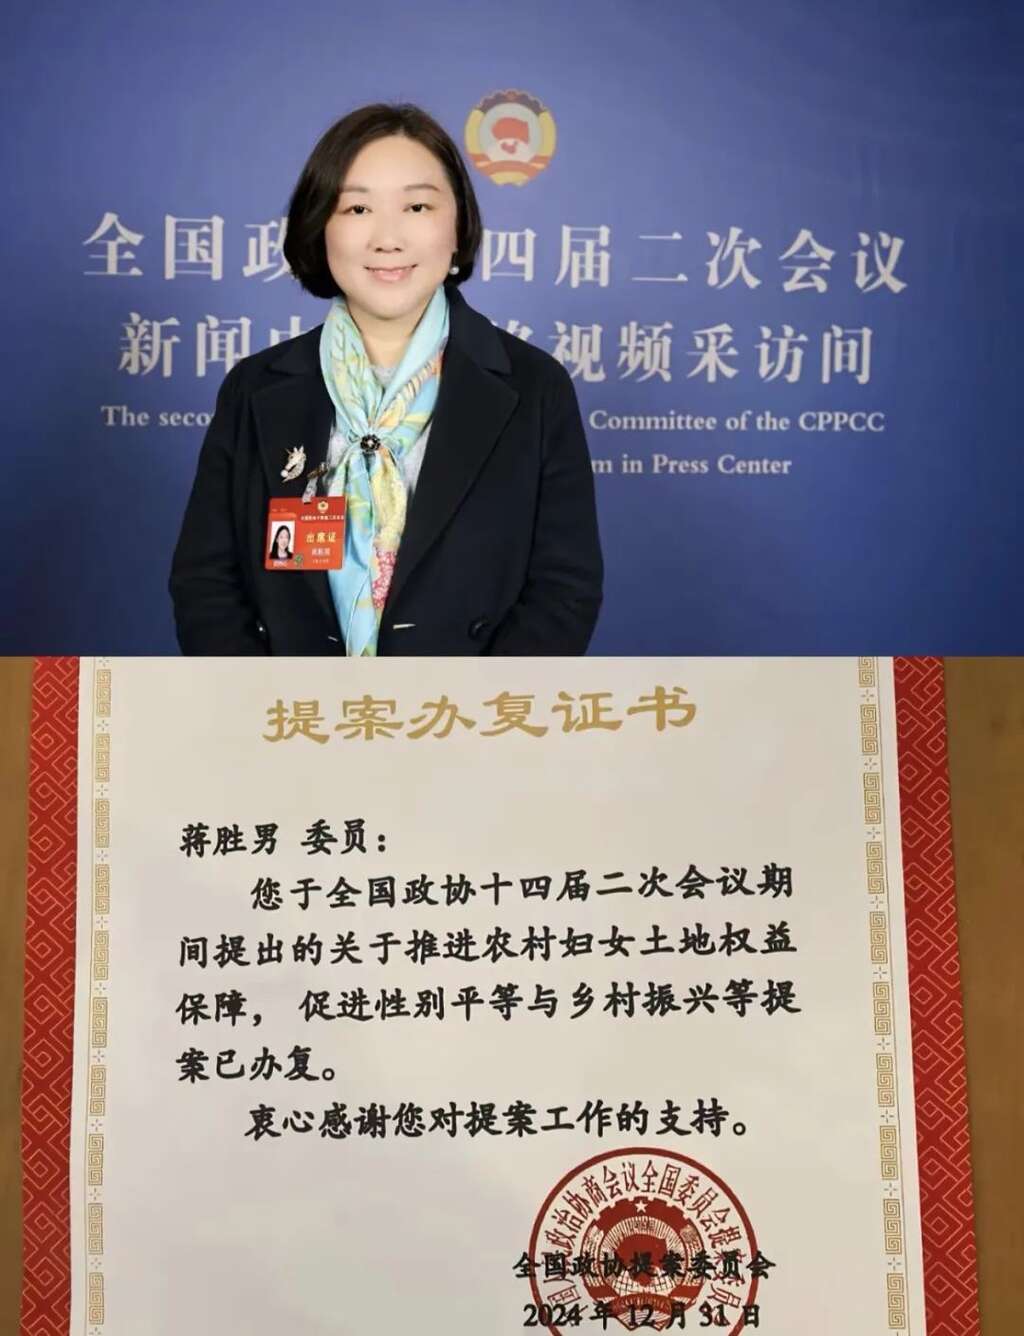 全国政 十四届二次会议
新闻中 视频采访间
The seco Committee of the CPPCC
m in Press Center
出席证
提案办复证书
蒋胜男 委员：
您于全国政协十四届二次会议期
间提出的关于推进农村妇女土地权益
保障，促进性别平等与乡村振兴等提
案已办复。
衷心感谢您对提案工作的支持。
全国政协提案委员会
2024 年 12 月 31 日